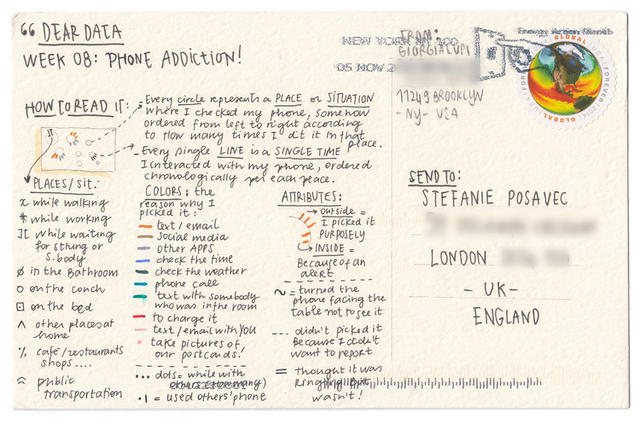 “ DEAR DATA
WEEK 08: PHONE ADDICTION!
HOW TO READ IT:
- Every circle represents a PLACE or SITUATION
where I checked my phone, somehow
ordered from left to right according
to How many times I did it in that
place.
- Every single LINE is a SINGLE TIME
I interacted with my phone, ordered
chronologically per each place.
PLACES/sit.:
x while walking
* while working
while waiting
for sthing or
s.body
ø in the Bathroom
o on the couch
⊡ on the bed
^ other places at
home
% café/restaurants
shops....
public
transportation
COLORS: the
reason why I
picked it:
text/email
social media
other APPS
check the time
check the weather
phone call
text with somebody
who was in the room
to charge it
text/email with YOU
take pictures of
our postcards!
... dots= while with
others
•| = used others' phone
ATTRIBUTES:
OUTSIDE =
I picked it
PURPOSELY
INSIDE =
Because of an
alert
~ = turned the
phone facing the
table not to see it
--- didn't picked it
Because I didn't
want to report
= thought it was
ringing but
wasn't!
NEW YORK NY 100
05 NOV 2
FROM:
GIORGIA LUPI
11249 BROOKLYN
- NY - USA
GLOBAL
FOREVER
GLOBAL
SEND TO:
STEFANIE POSAVEC
LONDON
- UK -
ENGLAND